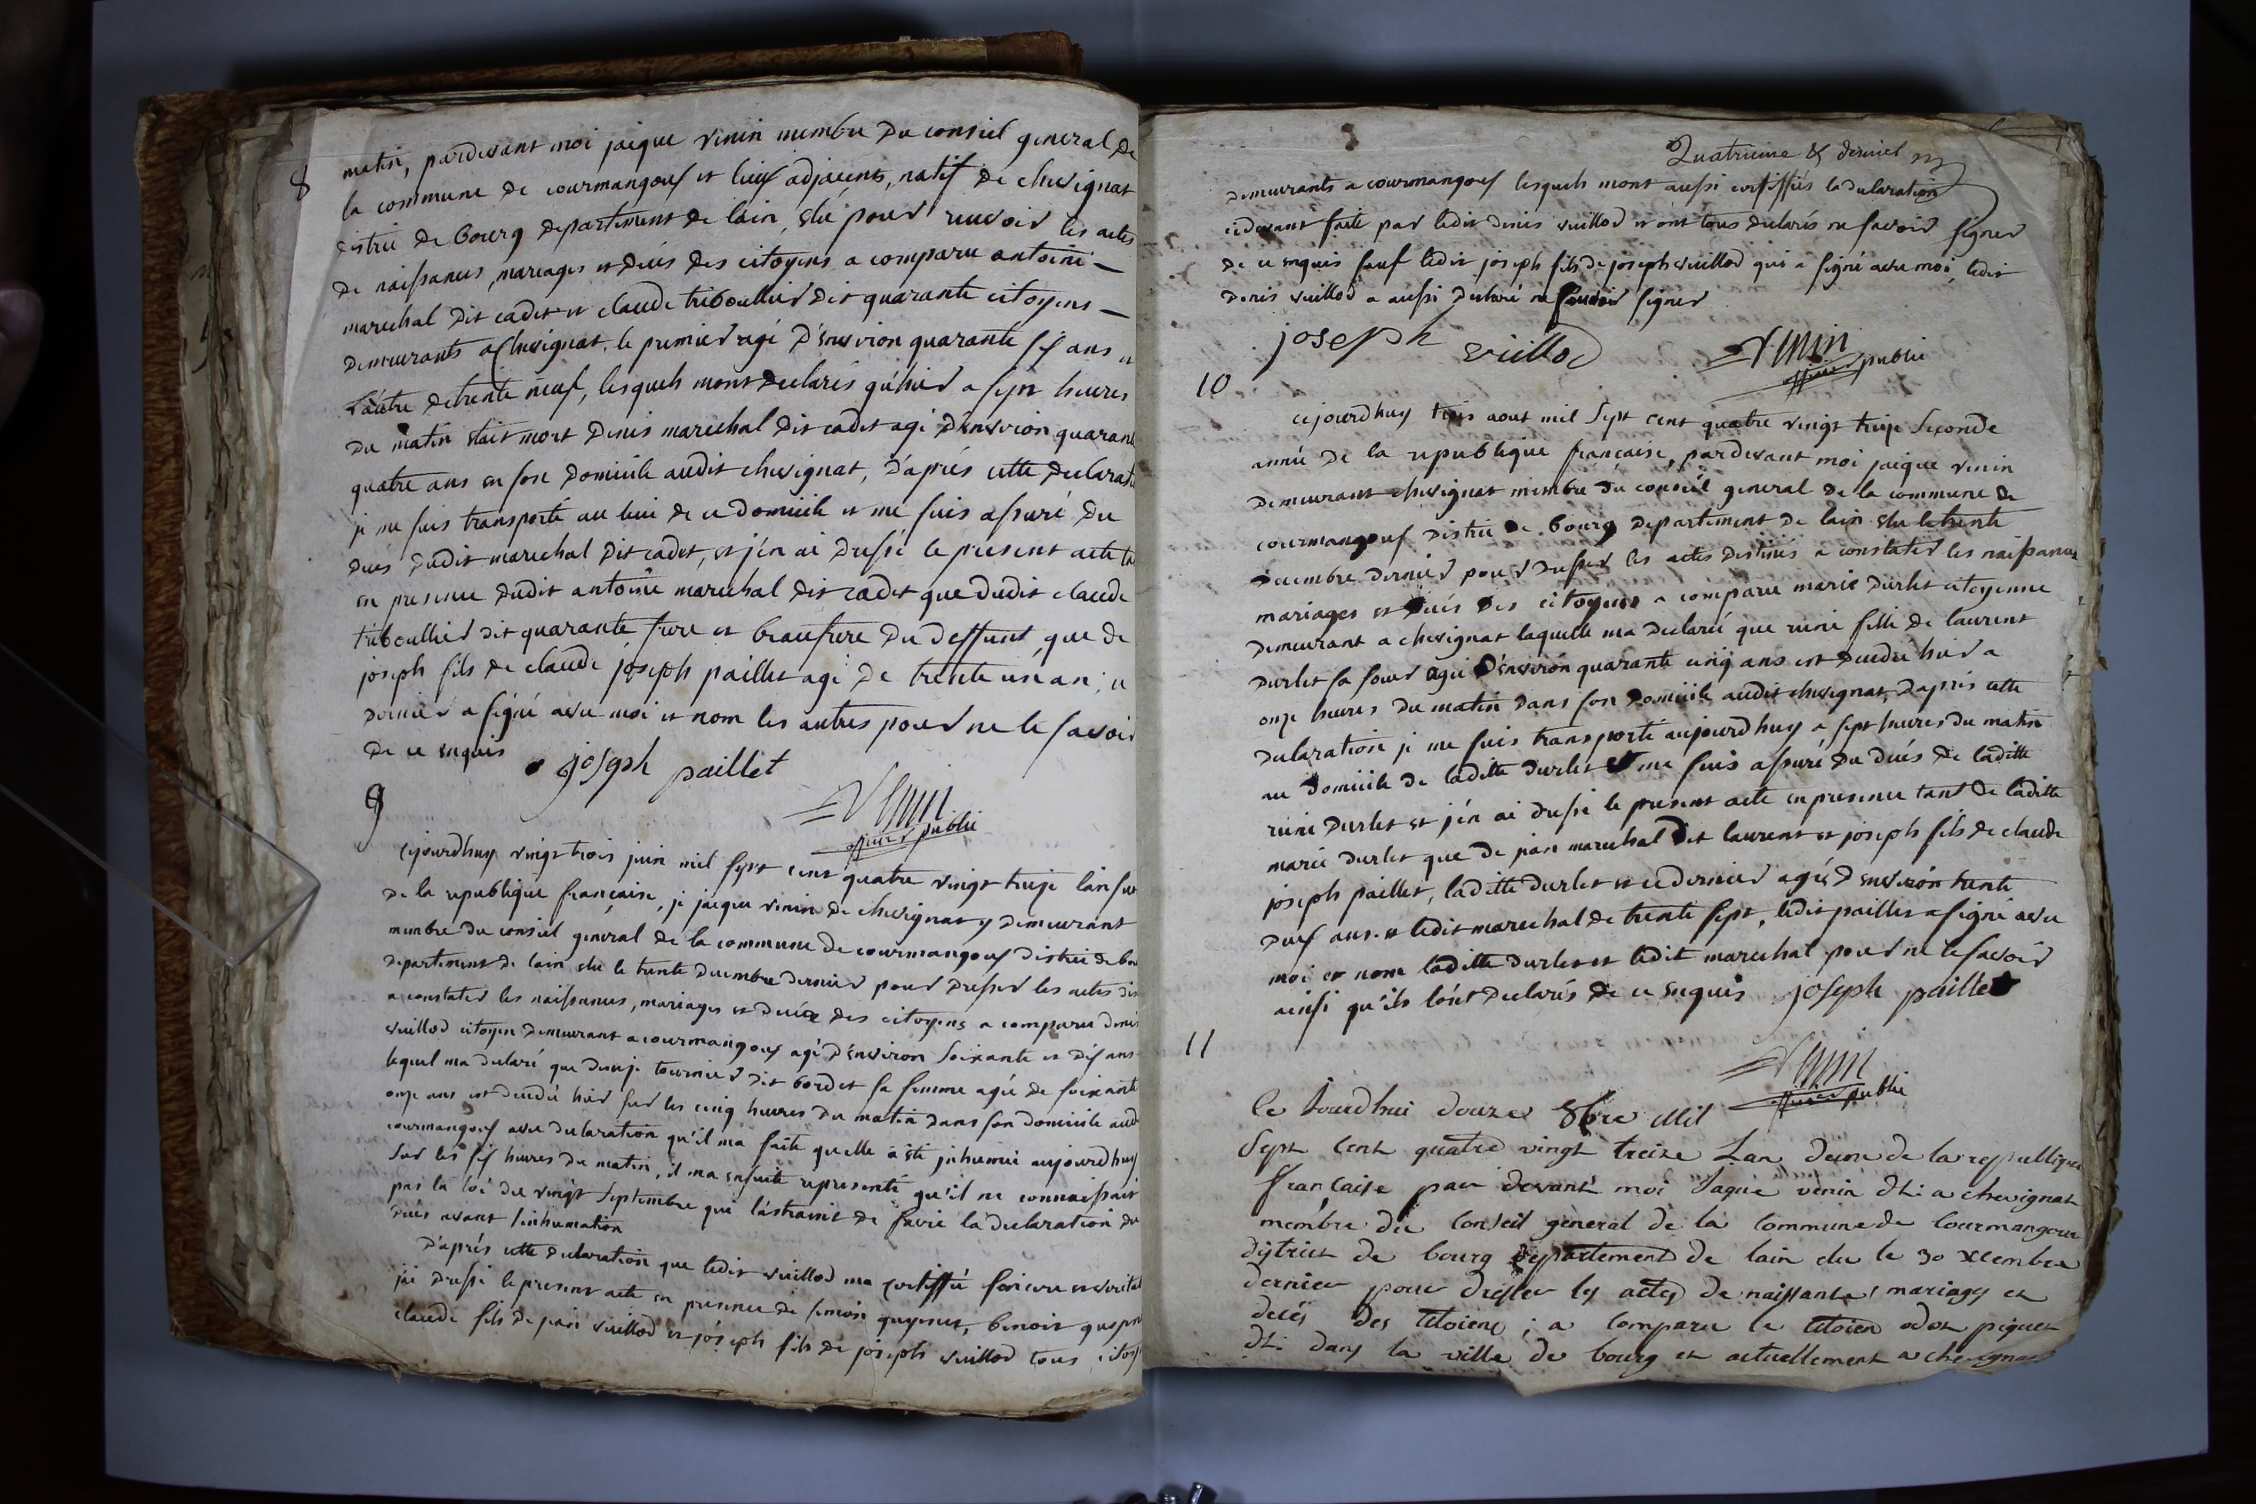 8
matin, pardevant moi jacque venin membre du conseil general de
la commune de courmangoux et lieux adjacents, natif de chevignat
district de bourg departement de lain, élu pour recevoir les actes
de naissances, mariages et décés des citoyens a comparu antoine
marechal dit cadet et claude triboullier dit quarante citoyens
demeurants a chevignat, le premier agé d'environ quarante six ans et
l'autre de trente neuf, lesquels mont declarés qu'hier a sept heures
du matin etait mort denis marechal dit cadet agé d'environ quarante
quatre ans en son domicile audit chevignat, d'aprés cette declaration
je me suis transporté au lieu de ce domicile et me suis assuré du
decés dudit marechal dit cadet, et j'en ai dressé le present acte
en presence dudit antoine marechal dit cadet que dudit claude
triboullier dit quarante frere et beaufrere du deffunt, que de
joseph fils de claude joseph paillet agé de trente un an, ce
dernier a signé avec moi et nom les autres pour ne le savoir
de ce enquis joseph paillet
Venin
officier public
9
cejourdhuy vingt trois juin mil sept cent quatre vingt treize l'an
de la republique française, je jacque venin de chevignat y demeurant
membre du conseil général de la commune de courmangoux district de
departement de lain élu le trente decembre dernier pour dresser les actes
a constater les naissances, mariages et decés des citoyens a comparu denis
vuillod citoyen demeurant a courmangoux agé d'environ soixante et dix ans
lequel ma declaré que denize tournier dit bordet sa femme agée de soixante
onze ans est decedé hier sur les cinq heures du matin dans son domicile audit
courmangoux avec declaration qu'il ma faite quelle a été inhumée aujourdhuy
sur les six heures du matin, il ma ensuite representé qu'il ne connaissait
pas la loi du vingt septembre qui l'astraint de faire la declaration du
decés avant l'inhumation
D'aprés cette declaration que ledit vuillod ma certiffié sincere et veritable
jai dressé le present acte en presence de simon guyenet, benoit
claude fils de pari vuillod et joseph fils de joseph vuillod tous
Quatrieme & dernier
demeurants a courmangoux lesquels mont aussi certiffiés la declaration
cidevant faite par ledit denis vuillod et ont tous declarés ne savoir signer
de ce enquis sauf ledit joseph fils de joseph vuillod qui a signé avec moi, ledit
denis vuillod a aussi declaré ne savoir signer
joseph vuillod
Venin
officier public
10
cejourdhuy trois aout mil sept cent quatre vingt treize seconde
année de la republique française, pardevant moi jacque venin
demeurant chevignat membre du conseil general de la commune de
courmangoux district de bourg departement de lain elu le trente
decembre dernier pour dresser les actes destinés a constater les naissances
mariages et decés des citoyens a comparu marie durlet citoyenne
demeurant a chevignat laquelle ma declaré que reine fille de laurent
durlet sa sœur agée d'environ quarante cinq ans est decedée hier a
onze heures du matin dans son domicile audit chevignat, d'aprés cette
declaration je me suis transporté aujourdhuy a sept heures du matin
au domicile de ladite durlet et me suis assuré du decés de ladite
reine durlet et j'en ai dressé le present acte en presence tant de ladite
marie durlet que de jean marechal dit laurent et joseph fils de claude
joseph paillet, ladite durlet et ce dernier agés d'environ trente
deux ans et ledit marechal de trente sept, ledit paillet a signé avec
moi et nom ladite durlet et ledit marechal pour ne le savoir
ainsi qu'ils l'ont declarés de ce enquis joseph paillet
Venin
officier public
11
Ce Jourdhui douze 8bre Mil
Sept cent quatre vingt treize Lan deux de la republique
française par devant moi Jaque venin dt. a chevignat
membre du Conseil general de la Commune de Courmangoux
district de bourg departement de lain elu le 30 xcembre
dernier pour dresser les actes de naissance, mariages et
deces des Citoiens ; a Comparu le Citoien odet piquet
dt. dans la ville de bourg et actuellement a chevignat